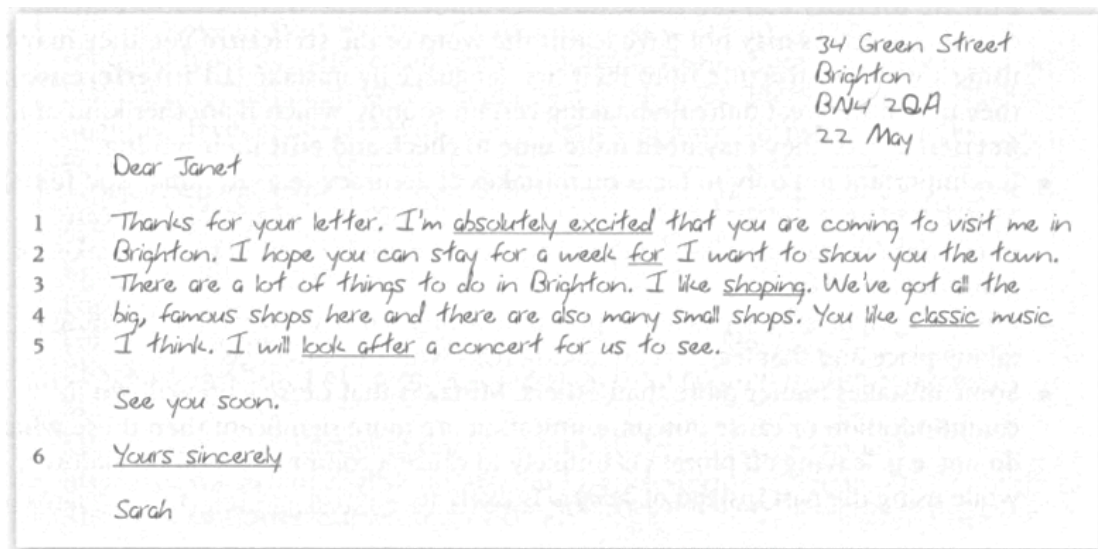 34 Green Street
Brighton
BN4 2QA
22 May
Dear Janet
1 Thanks for your letter. I'm absolutely excited that you are coming to visit me in
2 Brighton. I hope you can stay for a week for I want to show you the town.
3 There are a lot of things to do in Brighton. I like shoping. We've got all the
4 big, famous shops here and there are also many small shops. You like classic music
5 I think. I will look after a concert for us to see.
See you soon.
6 Yours sincerely
Sarah